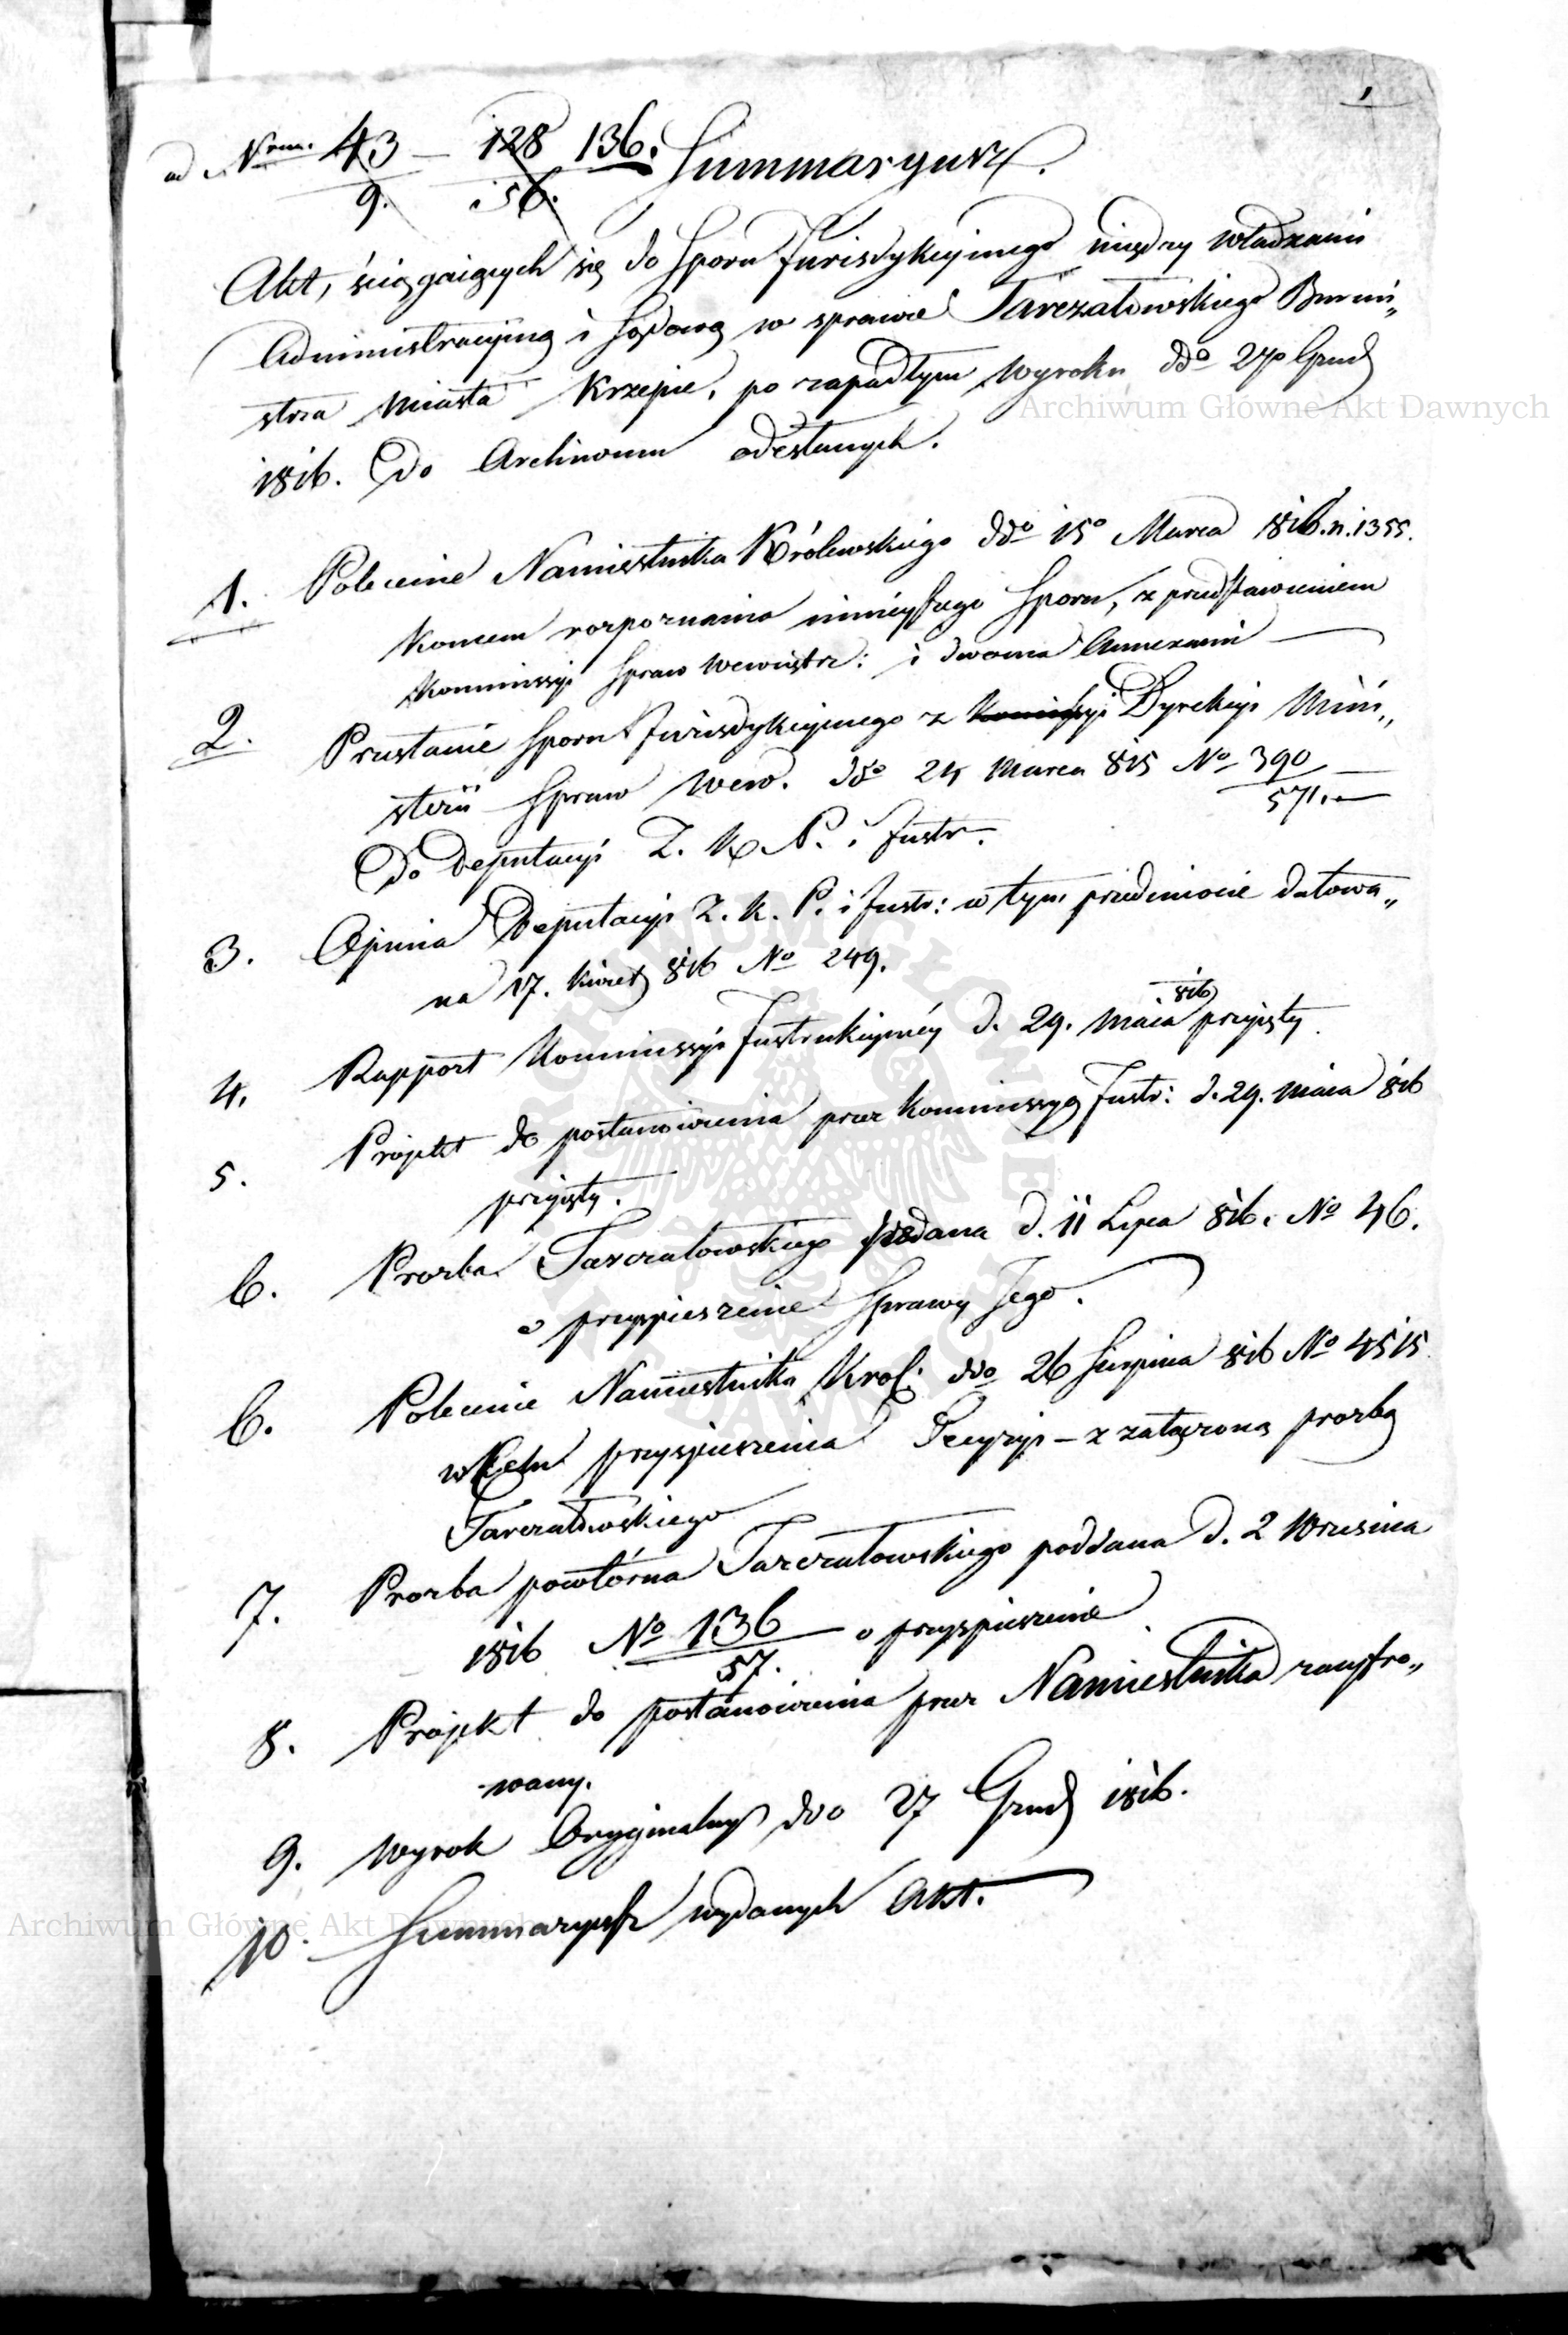 1
ad Nrum. 43 — 128 136. Summaryusz.
9. 56.
Akt, ściągaiących się do Sporu Jurisdykcyinego między władzami
Administracyiną i Sądową w sprawie Tarczałowskiego Burmi„
strza Miasta Krzepic, po zapadłym Wyroku ddo 27o Grud
1816. Do Archiwum odesłanych.
1. Polecenie Namiestnika Królewskiego ddo 15o Marca 1816. n. 1355.
Koncem rozpoznania ninieyszego Sporu, z przedstawieniem
Kommissyi Spraw Wewnętrz: i dwoma Annexami
2. Przesłanie Sporu Jurisdykcyinego z Komissyi Dyrekcyi Mini„
sterii Spraw Wew. ddo 24 Marca 815 No 390
571.
Do Deputacyi Z. K. P. i Instr.
3. Opinia Deputacyi Z. K. P. i Instr: w tym przedmiocie datowa„
na 17. Kwiet 816 No 249.
4. Rapport Kommissyi Instrukcyiney d. 29. Maia 816 przyięty.
5. Projekt do postanowienia przez Kommissyą Instr: d. 29. Maia 816
przyięty.
6. Prozba Tarczałowskiego podana d. 11 Lipca 816. No 46.
o przyspieszenie Sprawy Jego.
6. Polecenie Namiestnika Krol: ddo 26 Sierpnia 816 No 4515.
w Celu przyspieszenia Decyzyi – z załączoną prozbą
Tarczałowskiego
7. Prozba powtórna Tarczałowskiego poddana d. 2 Wrzesnia
1816 No 136 o przyspieszenie
57.
8. Projekt do postanowienia przez Namiestnika
wany.
9. Wyrok Oryginalny ddo 27 Grud 1816.
10. Summaryusz wydanych Akt.
Archiwum Główne Akt Dawnych
Archiwum Główne Akt Dawnych
ARCHIWUM GŁÓWNE AKT DAWNYCH